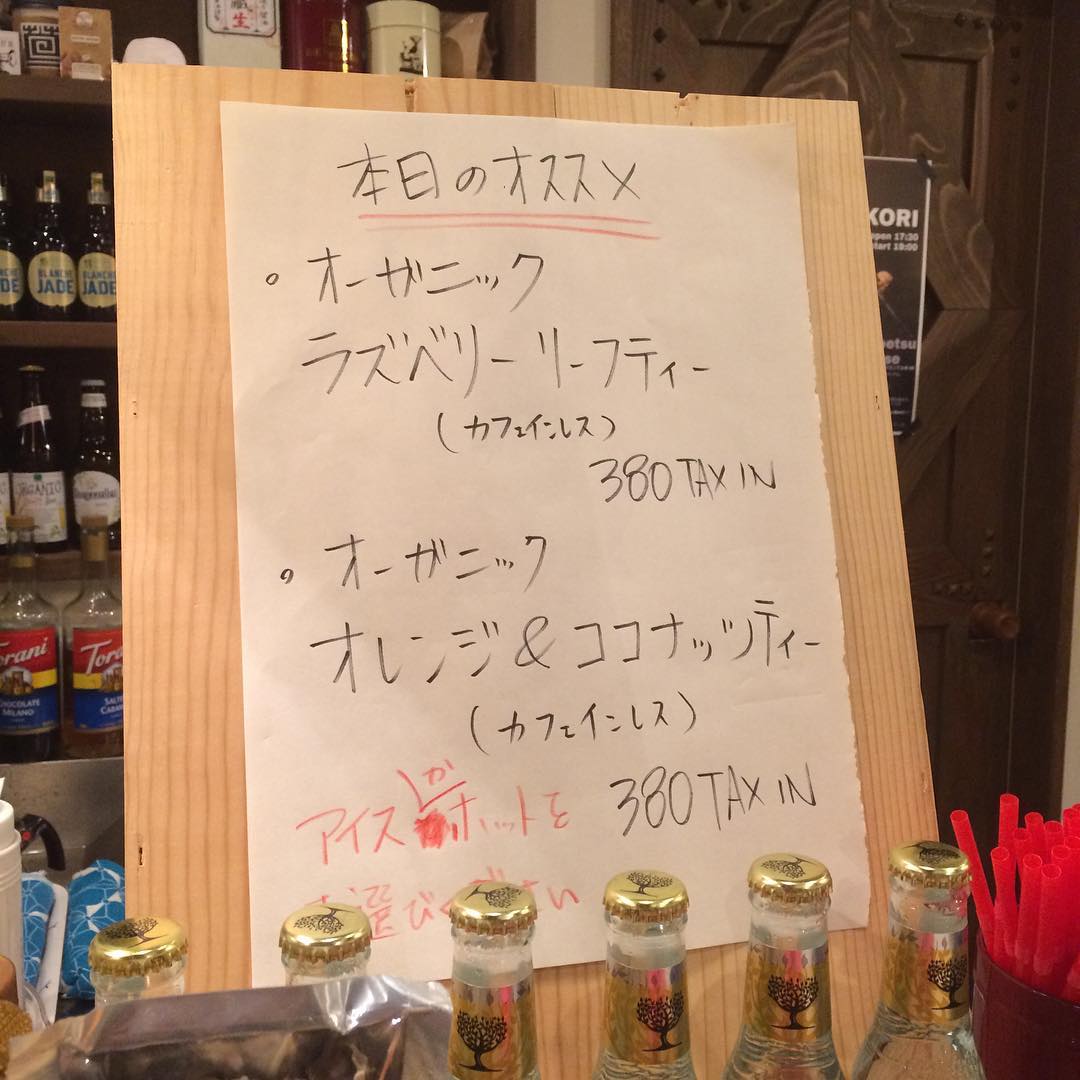 本日のオススメ
。オーガニック
ラズベリーリーフティー
(カフェインレス)
380 TAX IN
。オーガニック
オレンジ&ココナッツティー
(カフェインレス)
380 TAX IN
か
アイス ホットを
選び
い
KORI
open 17:30
start 19:00
BLANCHE
JADE
BLANCHE
JADE
Torani
CHOCOLATE
MILANO
Tora